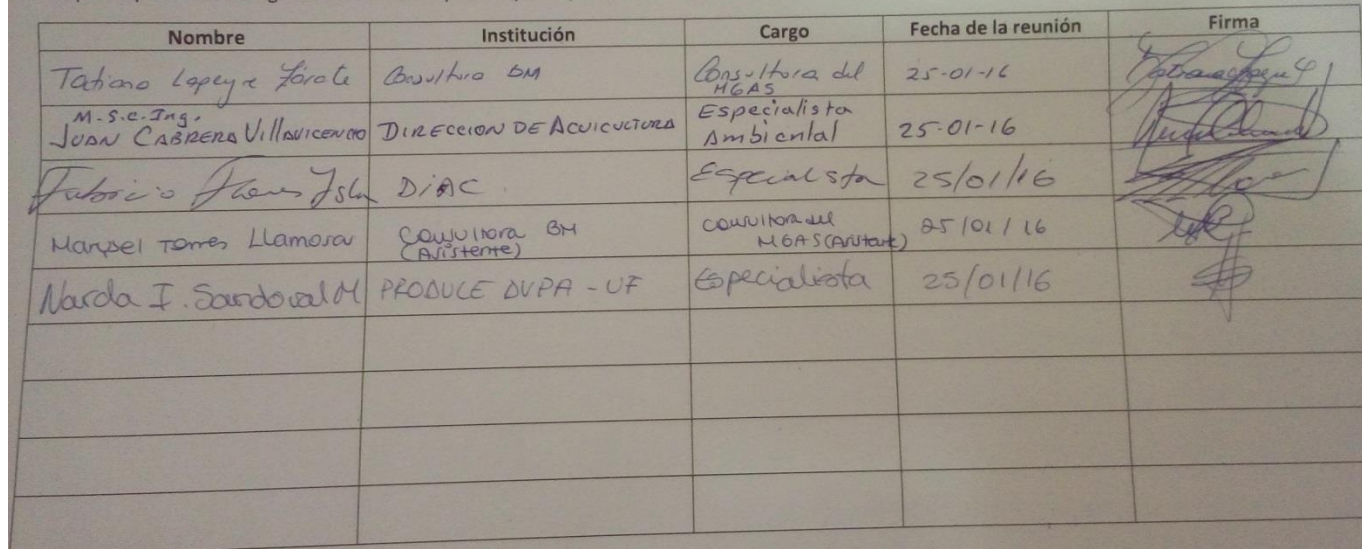 Nombre Institución Cargo Fecha de la reunión Firma
Tatiana Lapeyre Zárate Consultora BM Consultora del MGAS 25-01-16
M.S.c. Ing.
JUAN CABRERA VIllAVICENCIO DIRECCION DE ACUICULTURA Especialista Ambiental 25-01-16
Fabricio Flores Isla DIAC Especialista 25/01/16
Torres Llamosa Consultora BM (Asistente) consultora del MGAS (Asistente) 25/01/16
Narda I. Sandoval M PRODUCE DVPA - UF Especialista 25/01/16